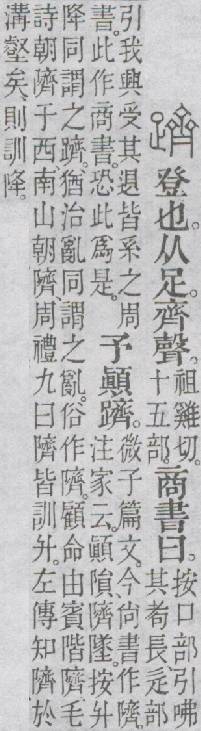 躋登也。从足。齊聲。祖雞切。十五部。商書曰。按口部引咈其耇長。辵部
引我興受其退皆系之周書。此作商書。恐此爲是。予顚躋。微子篇文。今尙書作隮。注家云。顚隕隮墜。按升
降同謂之躋。猶治亂同謂之亂。俗作隮。顧命由賓階隮毛
詩朝隮于西南山朝隮周禮九曰隮皆訓升。左傳知隮於
溝壑矣。則訓降。